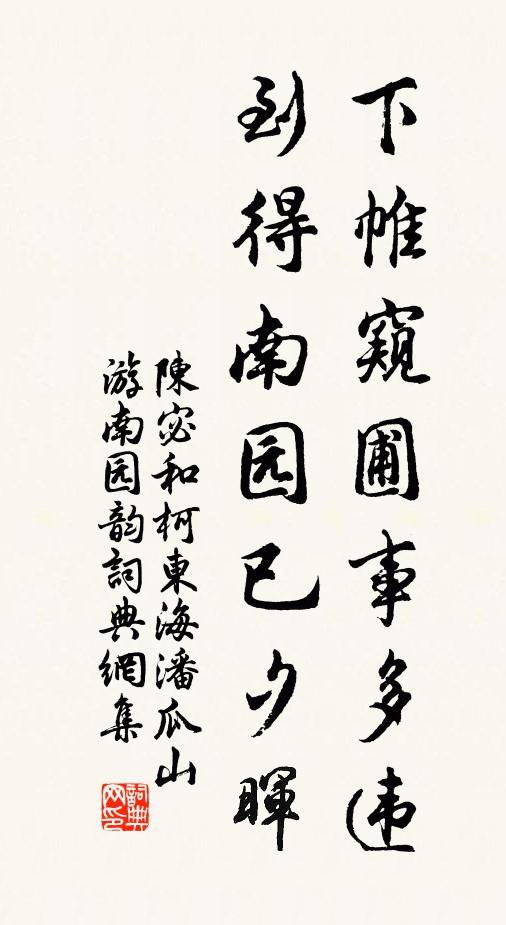 下帷窥圃事多违
到得南园已夕暉
陳宓和柯東海潘瓜山
游南园韵詞典網集
詞典
网印